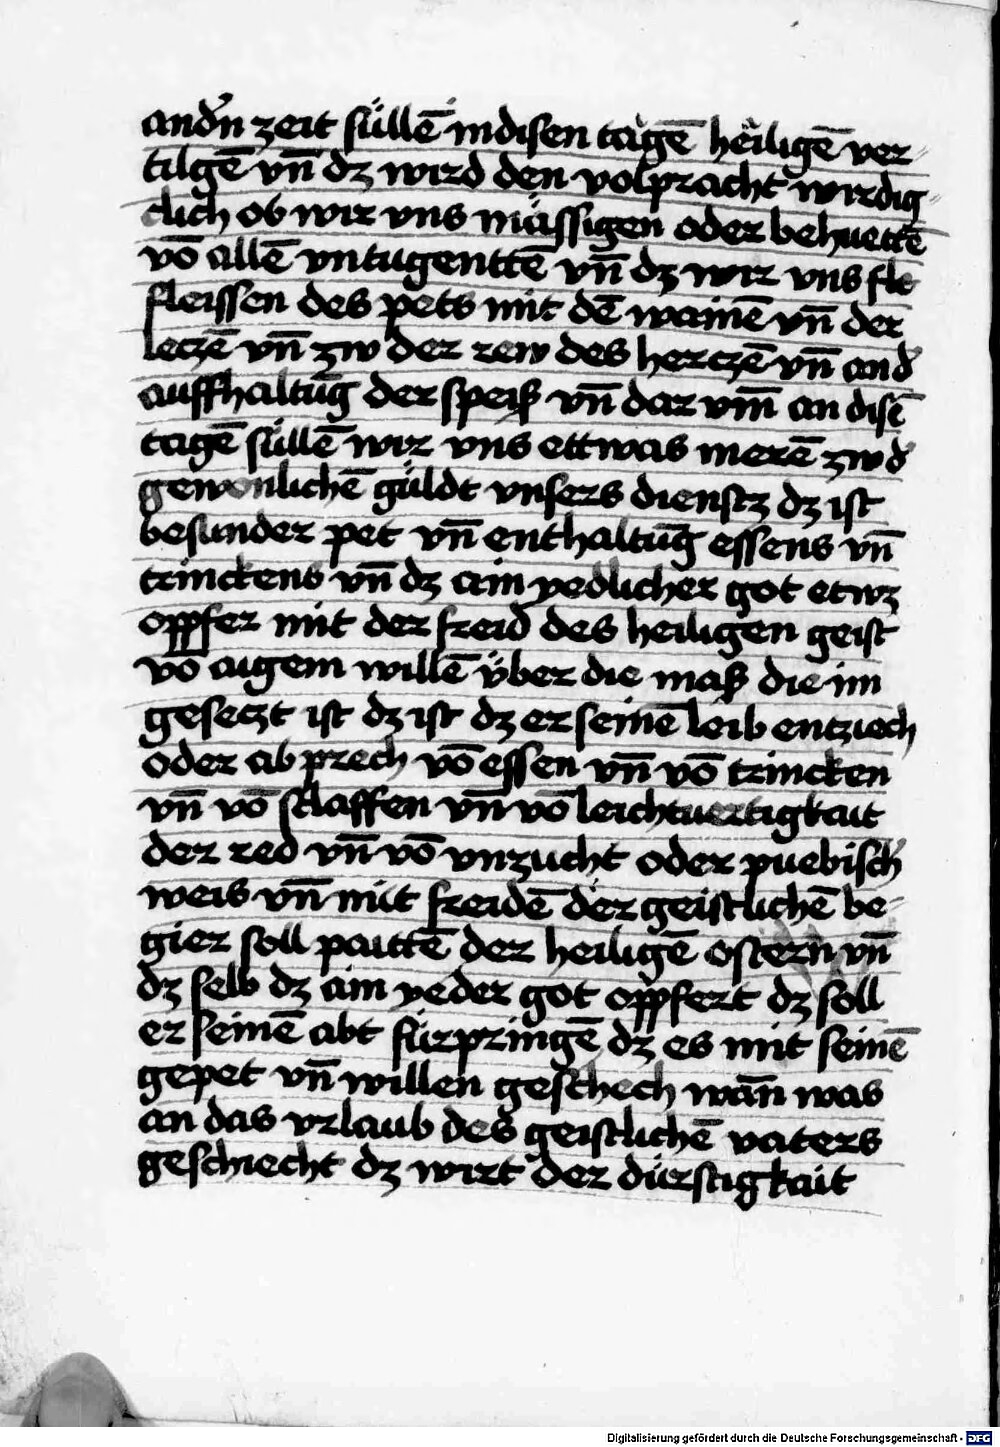 andˀn zeit süllē in disen tagē heiligē ver⸗
tilgē vn̄ dz wird den volpracht wirdig⸗
clich ob wir vns mässigen oder behuettē
vō allē vntugenttē vn̄ dz wir vns fle
fleissen des pets mit dē wainē vn̄ der
leczē vn̄ zw der rew des herczē vn̄ andˀ
auffhaltūg der speiß vn̄ dar vm̄ an disē
tagē süllē wir vns ettwas merē zw dˀ
gewonlichē güldt vnsers dienstz dz ist
besunder pet vn̄ enthaltūg essens vn̄
trinckens vn̄ dz ain yedlicher got etwz
oppfer mit der freid des heiligen geist
vō aigem willē über die maß die im
gesetzt ist dz ist dz er seinē leib entziech
oder ab prech vō essen vn̄ vō trincken
vn̄ vō schlaffen vn̄ vō leichtuertigkait
der red vn̄ vō vnzucht oder puebischˀ
weis vn̄ mit freidē der geistlichē be⸗
gier soll paittē der heiligē ostern vn̄
dz selb dz ain yeder got oppfert dz soll
er seinē abt fürpringē dz es mit seinē
gepet vn̄ willen geschech wān was
an das vrlaub des geistlichē vaters
geschiecht dz wirt der dürstigkait
Digitalisierung gefördert durch die Deutsche Forschungsgemeinschaft - DFG